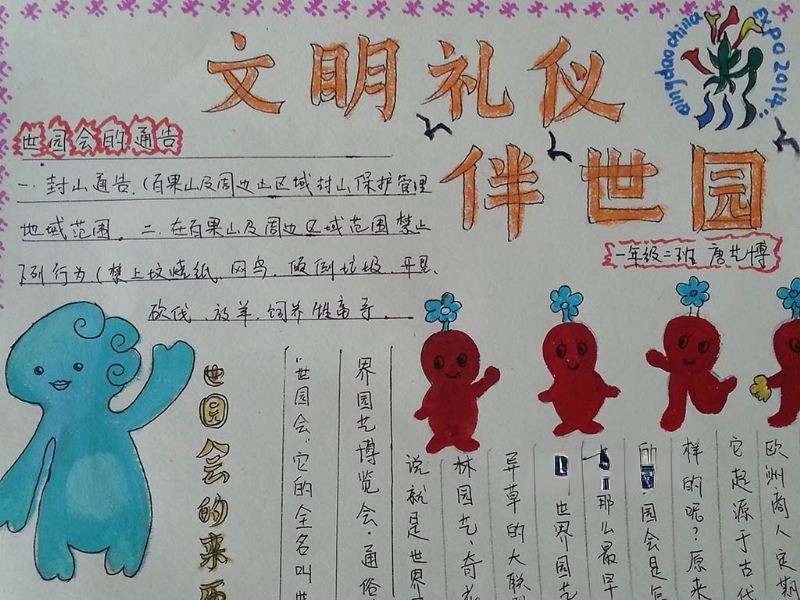 文明礼仪
伴世园
Qingdao china
EXPO 2014
世园会的通告
一年级二班 唐艺博
一.封山通告.(百果山及周边山区域封山保护管理
地域范围。二.在百果山及周边区域范围禁止
下列行为(禁上坟烧纸.网鸟.倾倒垃圾.开垦、
砍伐.放羊.饲养牲畜等。
世园会的来
"世园会"它的全名叫世
界园艺博览会.通俗
说就是世界
林园艺、奇花
异草的大联
世界园艺
那么最早
的 园会是怎
样的呢?原来
它起源于古代
欧洲.商人定期